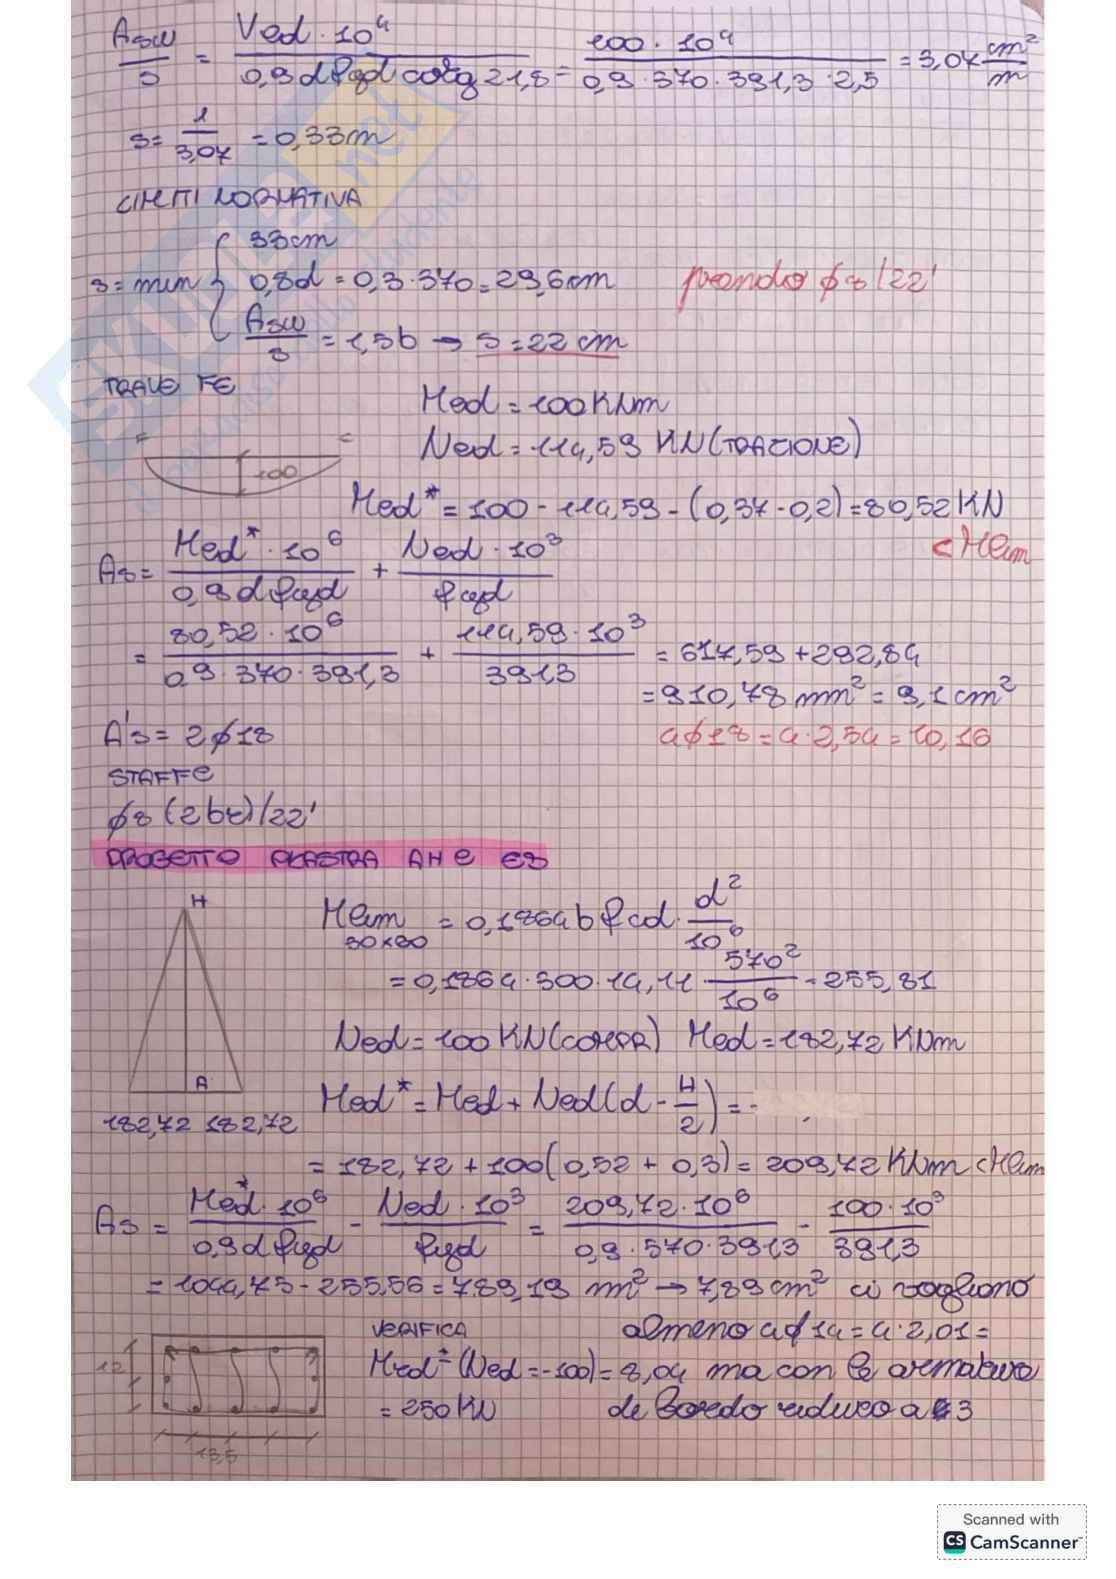 Asw/s = Ved · 10⁴ / 0,9 d fyd cotg 21,8 = 100 · 10⁴ / 0,9 · 370 · 391,3 · 2,5 = 3,07 cm²/m
s = 1/3,07 = 0,33 m
LIMITI NORMATIVA
s = min { 33 cm
0,8d = 0,8 · 370 = 29,6 cm prendo φ8/22'
Asw/s = 1,5b → s = 22 cm
TRAVE FE
Med = 100 KNm
F E 100
Ned = 114,59 KN (TRAZIONE)
Med* = 100 - 114,59 - (0,37 - 0,2) = 80,52 KN < Mlim
As = Med* · 10⁶ / 0,9 d fyd + Ned · 10³ / fyd
= 80,52 · 10⁶ / 0,9 · 370 · 391,3 + 114,59 · 10³ / 391,3 = 617,59 + 292,84
= 910,78 mm² = 9,1 cm²
A's = 2φ18 4φ18 = 4 · 2,54 = 10,16
STAFFE
φ8 (2br)/22'
PROGETTO PILASTRA AH e EB
H
Mlim 30x60 = 0,1864 b fcd · d²/10⁶
= 0,1864 · 300 · 14,11 · 570²/10⁶ = 255,81
Ned = 100 KN (COMPR) Med = 182,72 KNm
A
Med* = Med + Ned (d - H/2) =
182,72 182,72
= 182,72 + 100 (0,52 + 0,3) = 209,72 KNm < Mlim
As = Med* · 10⁶ / 0,9 d fyd - Ned · 10³ / fyd = 209,72 · 10⁶ / 0,9 · 570 · 391,3 - 100 · 10³ / 391,3
= 1044,75 - 255,56 = 789,19 mm² → 7,89 cm² ci vogliono
VERIFICA almeno 4φ14 = 4 · 2,01 =
12 Med* (Ned = -100) = 8,04 ma con le armature
= 250 KN de bordo riduco a 3
13,5
Scanned with
CS CamScanner